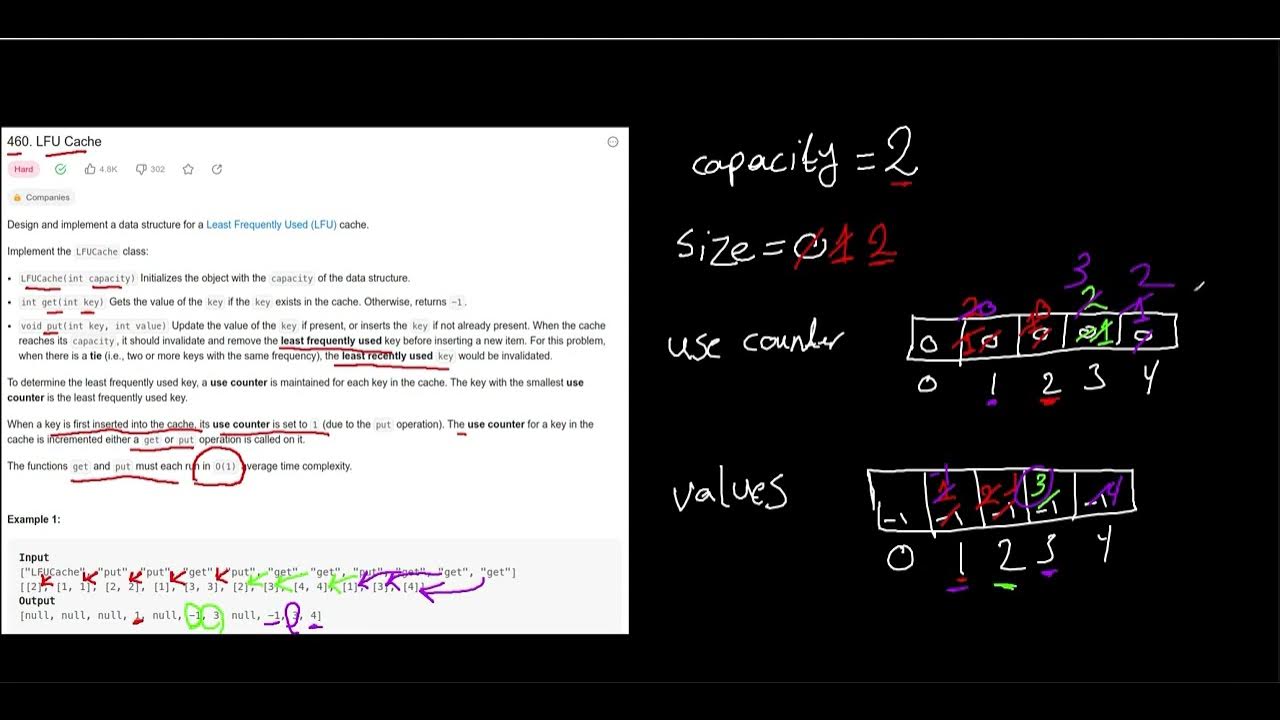 460. LFU Cache
Hard 4.8K 302
Companies
Design and implement a data structure for a Least Frequently Used (LFU) cache.
Implement the LFUCache class:
• LFUCache(int capacity) Initializes the object with the capacity of the data structure.
• int get(int key) Gets the value of the key if the key exists in the cache. Otherwise, returns -1.
• void put(int key, int value) Update the value of the key if present, or inserts the key if not already present. When the cache
reaches its capacity, it should invalidate and remove the least frequently used key before inserting a new item. For this problem,
when there is a tie (i.e., two or more keys with the same frequency), the least recently used key would be invalidated.
To determine the least frequently used key, a use counter is maintained for each key in the cache. The key with the smallest use
counter is the least frequently used key.
When a key is first inserted into the cache, its use counter is set to 1 (due to the put operation). The use counter for a key in the
cache is incremented either a get or put operation is called on it.
The functions get and put must each run in O(1) average time complexity.
Example 1:
Input
["LFUCache", "put", "put", "get", "put", "get", "get", "put", "get", "get", "get"]
[[2], [1, 1], [2, 2], [1], [3, 3], [2], [3], [4, 4], [1], [3], [4]]
Output
[null, null, null, 1, null, -1, 3, null, -1, 3, 4]
capacity = 2
size = 0 1 2
3 2
2 0 0 2 1
use counter 0 1 0 0 0 1 0
0 1 2 3 4
values -1 -1 -1 -1 -1
0 1 2 3 4